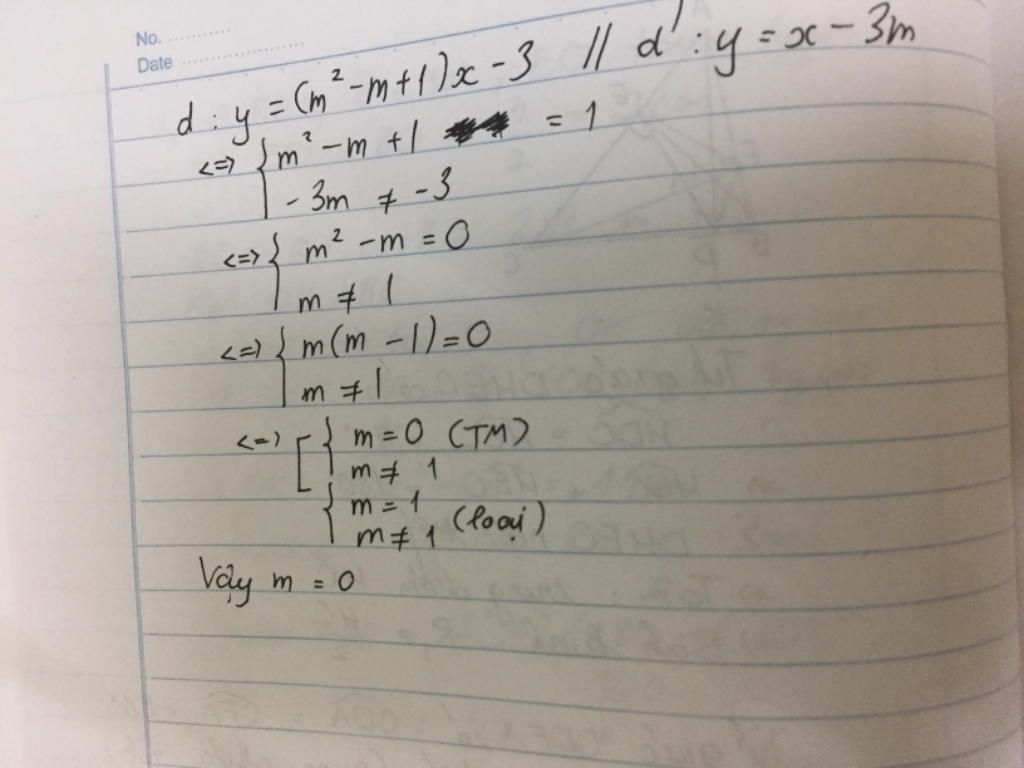 No. ..........
Date ....................
d : y = (m² - m + 1)x - 3 // d' : y = x - 3m
<=> { m² - m + 1 = 1
- 3m ≠ - 3
<=> { m² - m = 0
m ≠ 1
<=> { m(m - 1) = 0
m ≠ 1
<=> [ { m = 0 (TM)
m ≠ 1
{ m = 1
m ≠ 1 (loại)
Vậy m = 0